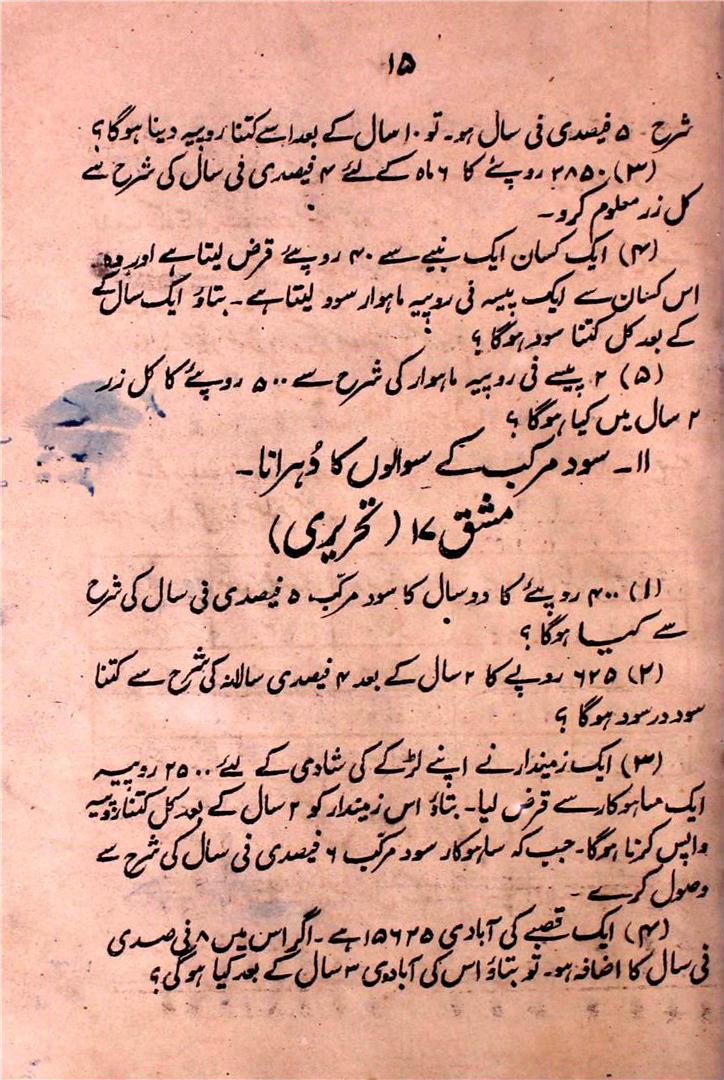 ۱۵
شرح ۵ فیصدی فی سال ہو۔ تو ۱۰ سال کے بعد اسے کتنا روپیہ دینا ہوگا؟
(۳) ۲۸۵۰ روپئے کا ۶ ماہ کے لئے ۴ فیصدی فی سال کی شرح سے
کل زر معلوم کرو۔
(۴) ایک کسان ایک بنیے سے ۴۰ روپئے قرض لیتا ہے اور وہ
اس کسان سے ایک پیسہ فی روپیہ ماہوار سود لیتا ہے۔ بتاؤ ایک سال کے
کے بعد کل کتنا سود ہوگا؟
(۵) ۲ پیسے فی روپیہ ماہوار کی شرح سے ۵۰۰ روپئے کا کل زر
۲ سال میں کیا ہوگا؟
۱۱۔ سود مرکب کے سوالوں کا دُہرانا۔
مشق ۱۷ (تحریری)
(۱) ۴۰۰ روپئے کا دو سال کا سود مرکب ۵ فیصدی فی سال کی شرح
سے کیا ہوگا؟
(۲) ۶۲۵ روپے کا ۲ سال کے بعد ۴ فیصدی سالانہ کی شرح سے کتنا
سود در سود ہوگا؟
(۳) ایک زمیندار نے اپنے لڑکے کی شادی کے لئے ۲۵۰۰ روپیہ
ایک ساہوکار سے قرض لیا۔ بتاؤ اس زمیندار کو ۲ سال کے بعد کل کتنا روپیہ
واپس کرنا ہوگا۔ جب کہ ساہوکار سود مرکب ۶ فیصدی فی سال کی شرح سے
وصول کرے۔
(۴) ایک قصبے کی آبادی ۱۵۶۲۵ ہے۔ اگر اس میں ۸ فی صدی
فی سال کا اضافہ ہو۔ تو بتاؤ اس کی آبادی ۳ سال کے بعد کیا ہوگی؟